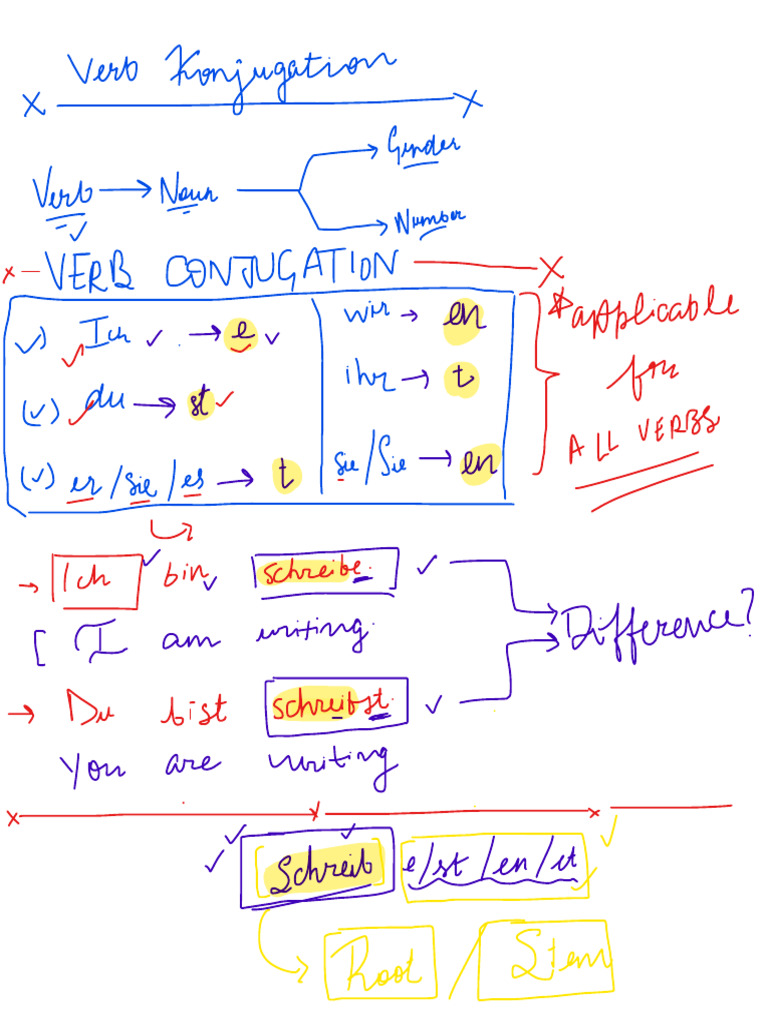 Verb Konjugation
x x
Verb → Noun → Gender
→ Number
x - VERB CONJUGATION x
✓) Ich ✓ . → e ✓
(✓) du → st ✓
(✓) er / sie / es → t
wir → en
ihr → t
sie / Sie → en
* applicable
for
ALL VERBS
→ Ich ✓ bin ✓ schreibe. ✓
[ I am writing.
→ Du bist schreibst. ✓
You are writing
Difference?
✓ [Schreib] e/st/en/et ✓
Root / Stem